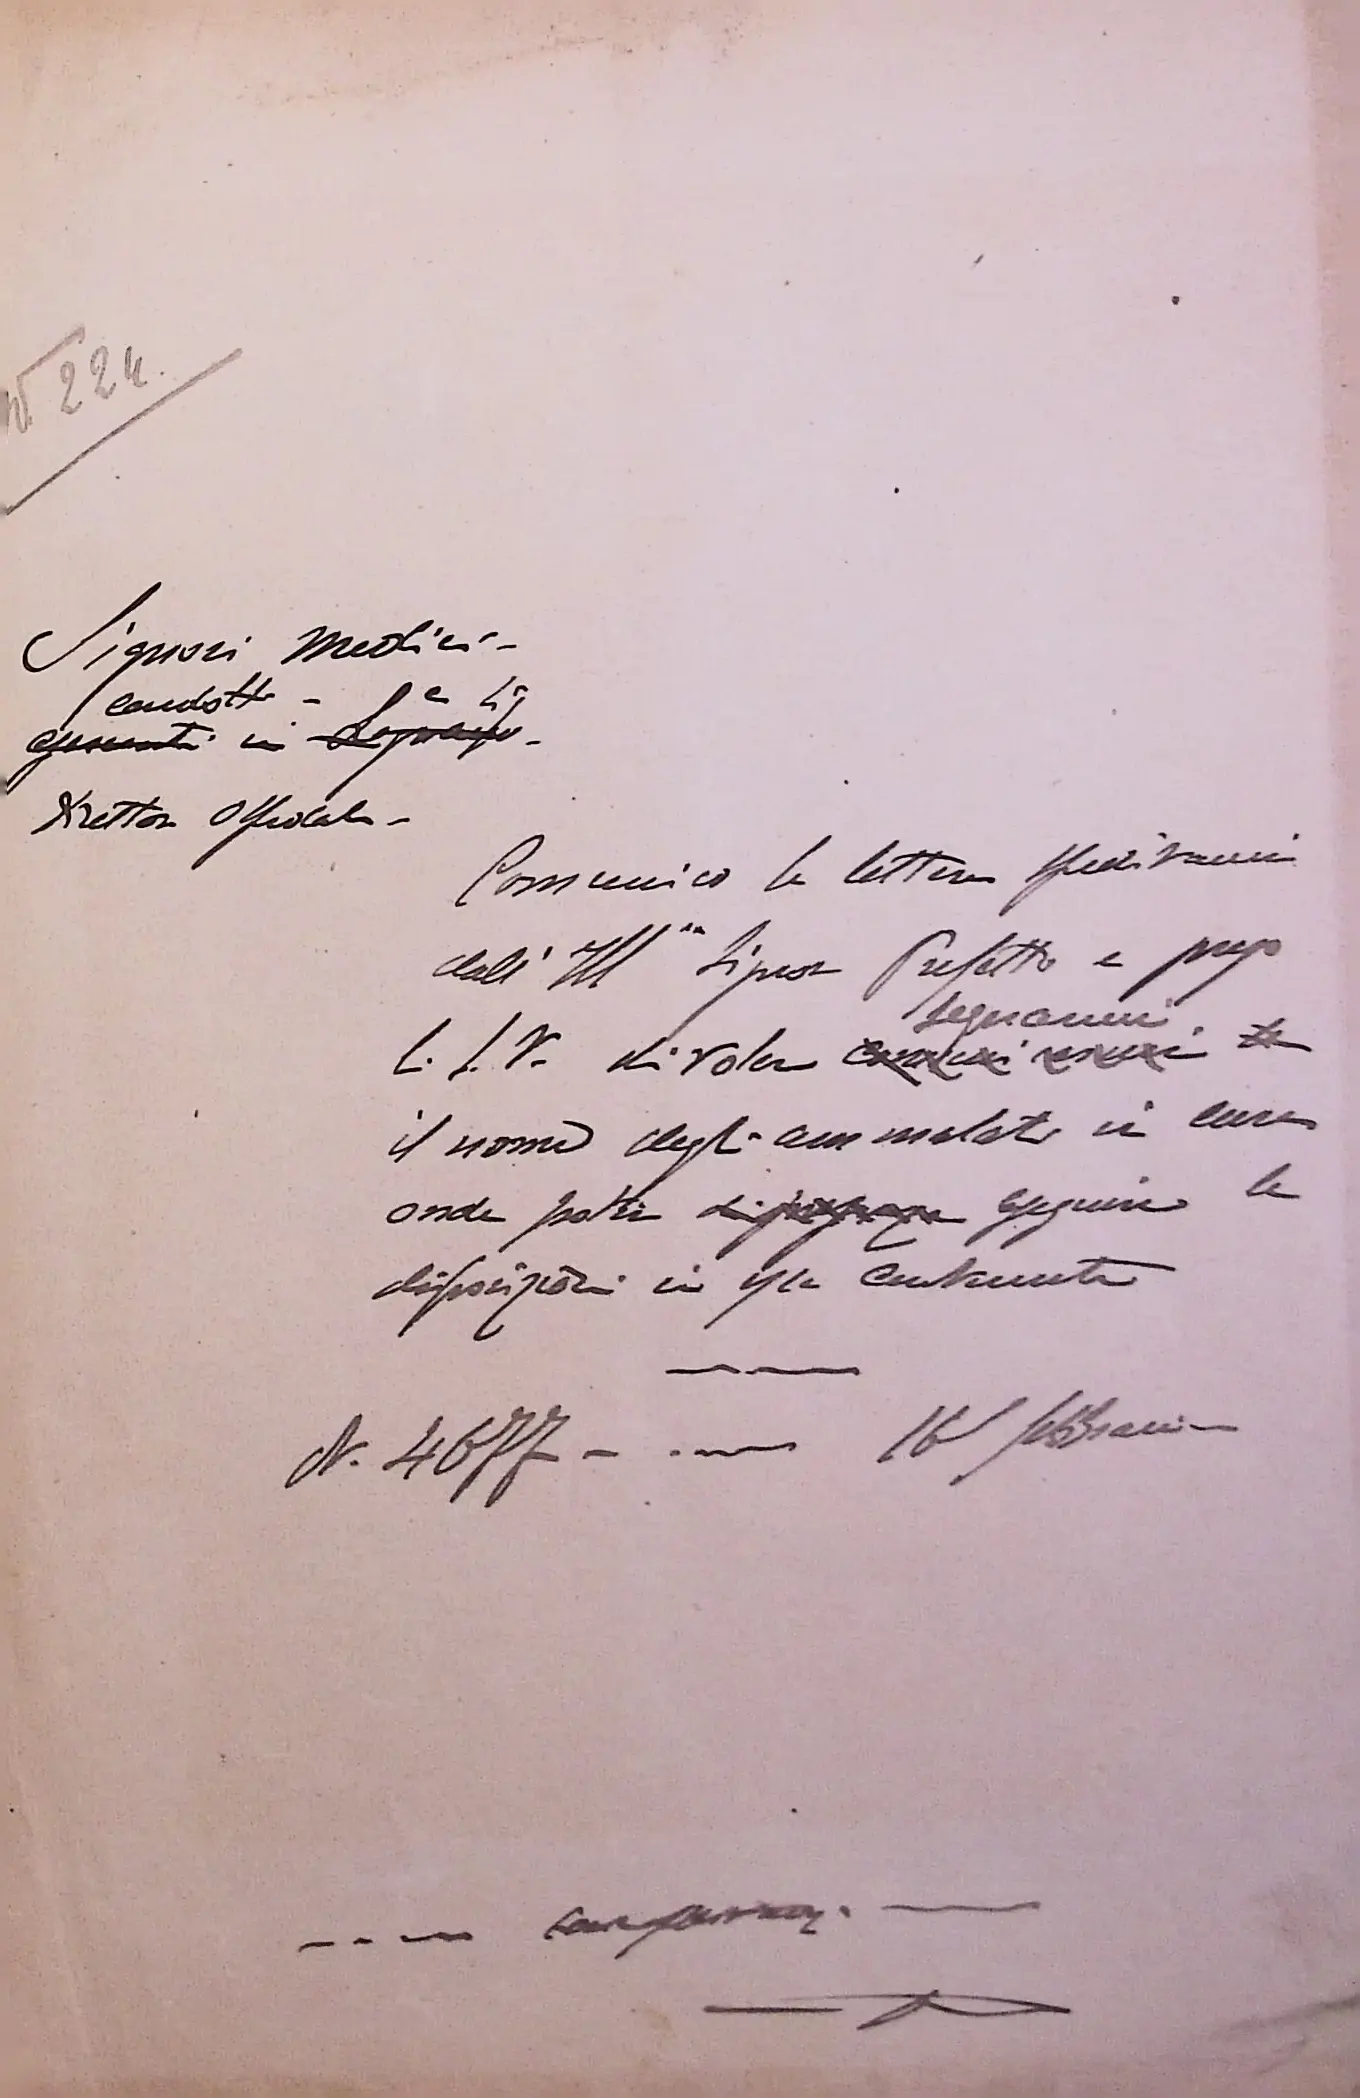 N. 224.
Signori Medici -
condotti -
esercenti in
Direttore Ospedale -
Comunico la lettera speditami
dall' Ill.mo Signor Prefetto e prego
segnarmi
L. S. V. di voler
il nome degli ammalati in cura
onde potere eseguire le
disposizioni in essa contenute
N. 4677 - 16 febbraio -